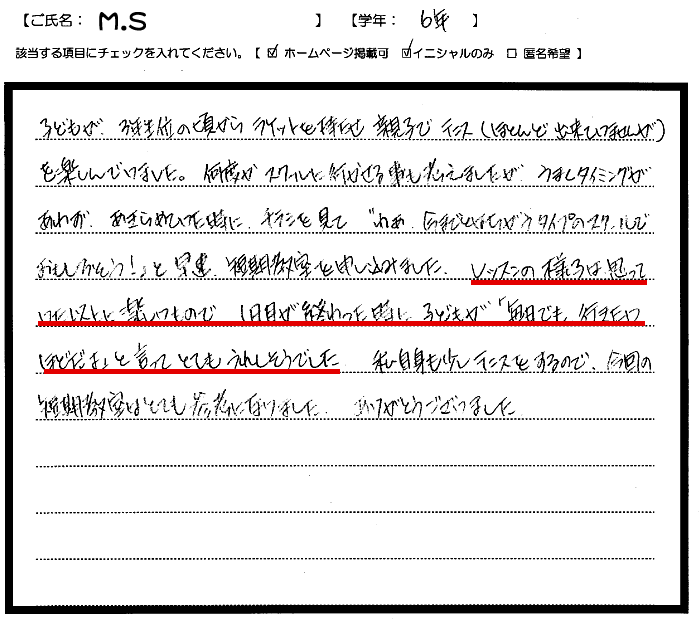 【ご氏名： M.S 】 【学年： 6年 】
該当する項目にチェックを入れてください。【 ☑ ホームページ掲載可 ☑ イニシャルのみ □ 匿名希望 】
子どもが、3年生位の頃から ラケットを持たせ 親子で テニス (ほとんど 出来ていませんが)
を楽しんでいました。 何度か スクールに 行かせる事も 考えましたが うまくタイミングが
あわず、 あきらめていた時に、 チラシを見て 今までとはちがう タイプのスクールで
おもしろそう！」と 早速 短期教室を申し込みました。 レッスンの 様子は 思って
いた以上に 楽しいもので 1日目が 終わった時に 子どもが 「毎日でも 行きたい
ほどだよ」と 言って とても うれしそうでした 私自身も少しテニスをするので、今回の
短期教室はとても 参考になりました。 ありがとうございました